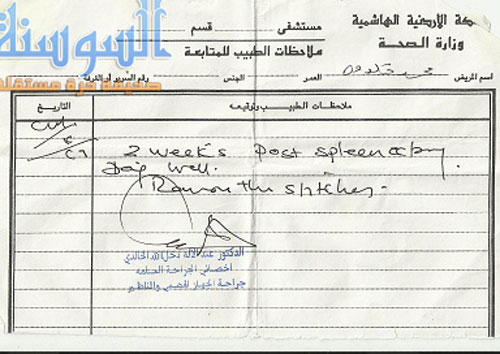 السوسنة
صحيفة حرة مستقلة
ـكة الأردنية الهاشمية
وزارة الصحة
مستشفى قسم
ملاحظات الطبيب للمتابعة
اسم المريض محمد العمر الجنس رقم السرير أو الغرفة
التاريخ ملاحظات الطبيب وتوقيعه
2 week's post spleenectomy
doing well.
Remove the stitches.
الدكتور عبدالاله دخل الله الخالدي
اخصائي الجراحة العامة
جراحة الجهاز الهضمي والناظير